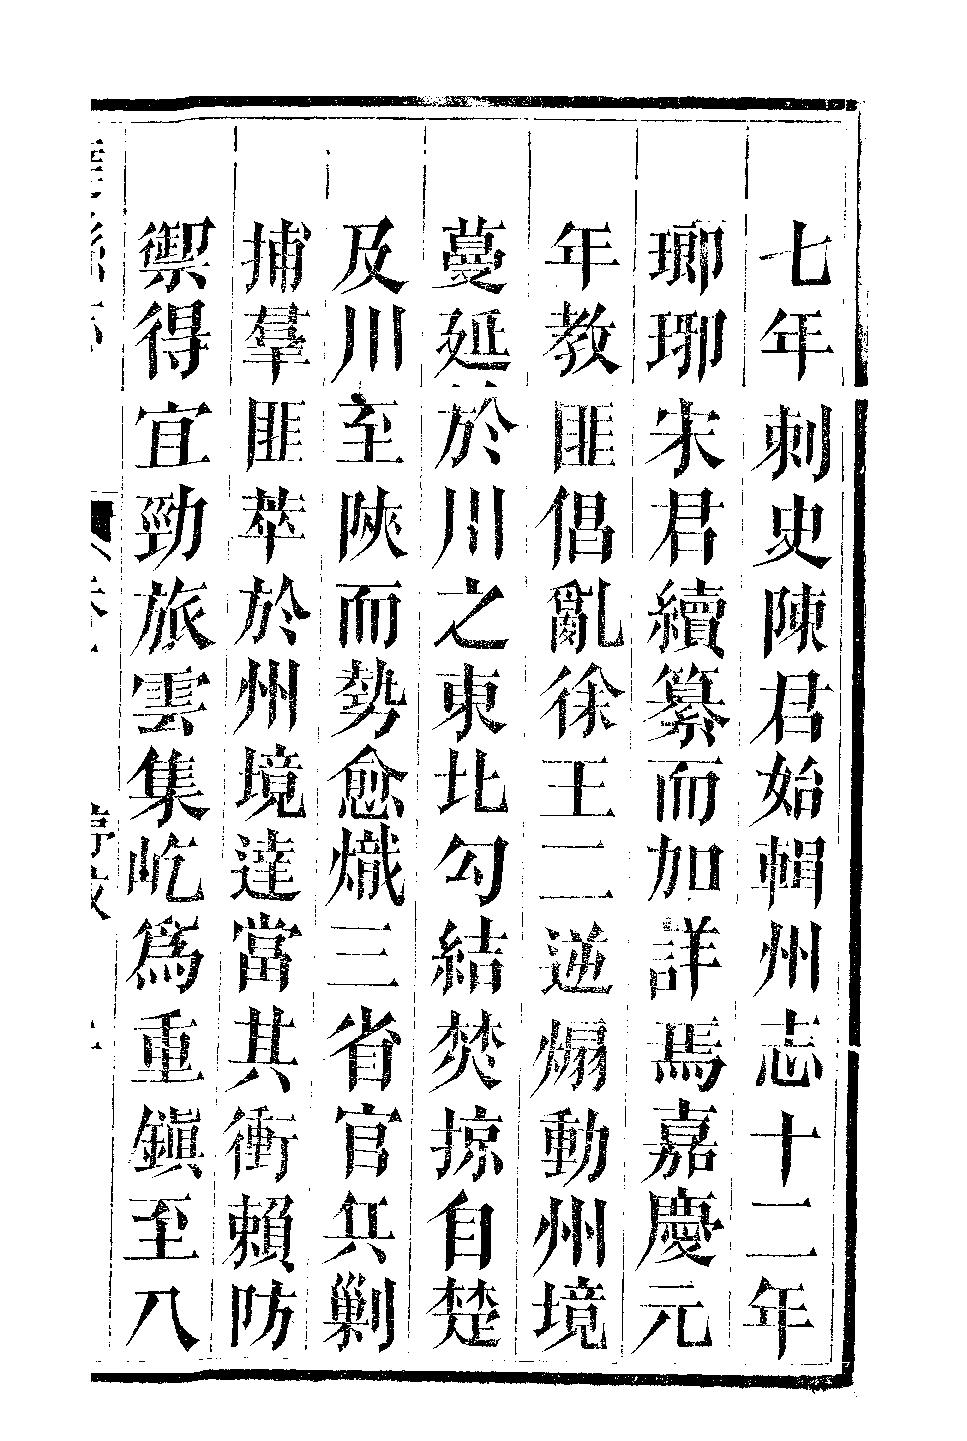 七年刺史陳君始輯州志十二年
瑯琊宋君續纂而加詳焉嘉慶元
年教匪倡亂徐王二逆煽動州境
蔓延於川之東北勾結焚掠自楚
及川至陝而勢愈熾三省官兵剿
捕羣匪萃於州境達當其衝賴防
禦得宜勁旅雲集屹爲重鎮至八